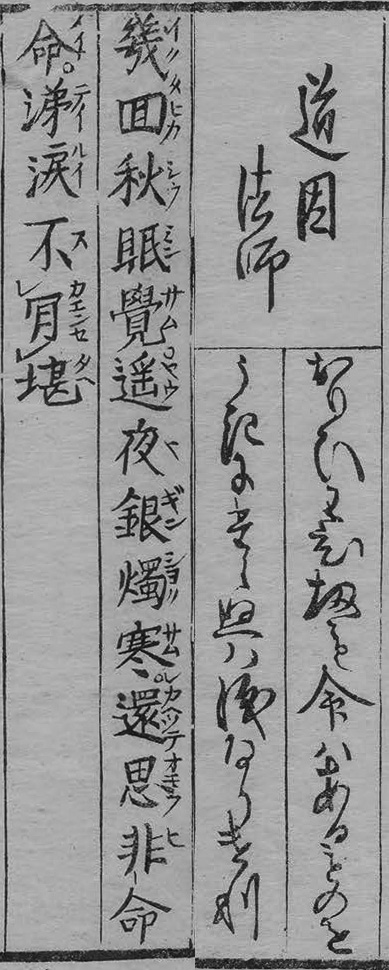 道因
法師
おもひわひ扨も命はあるものを
うきにたへぬハ涙なりけり
幾回秋眠覺遥夜銀燭寒還思非命
命。涕涙不肯堪